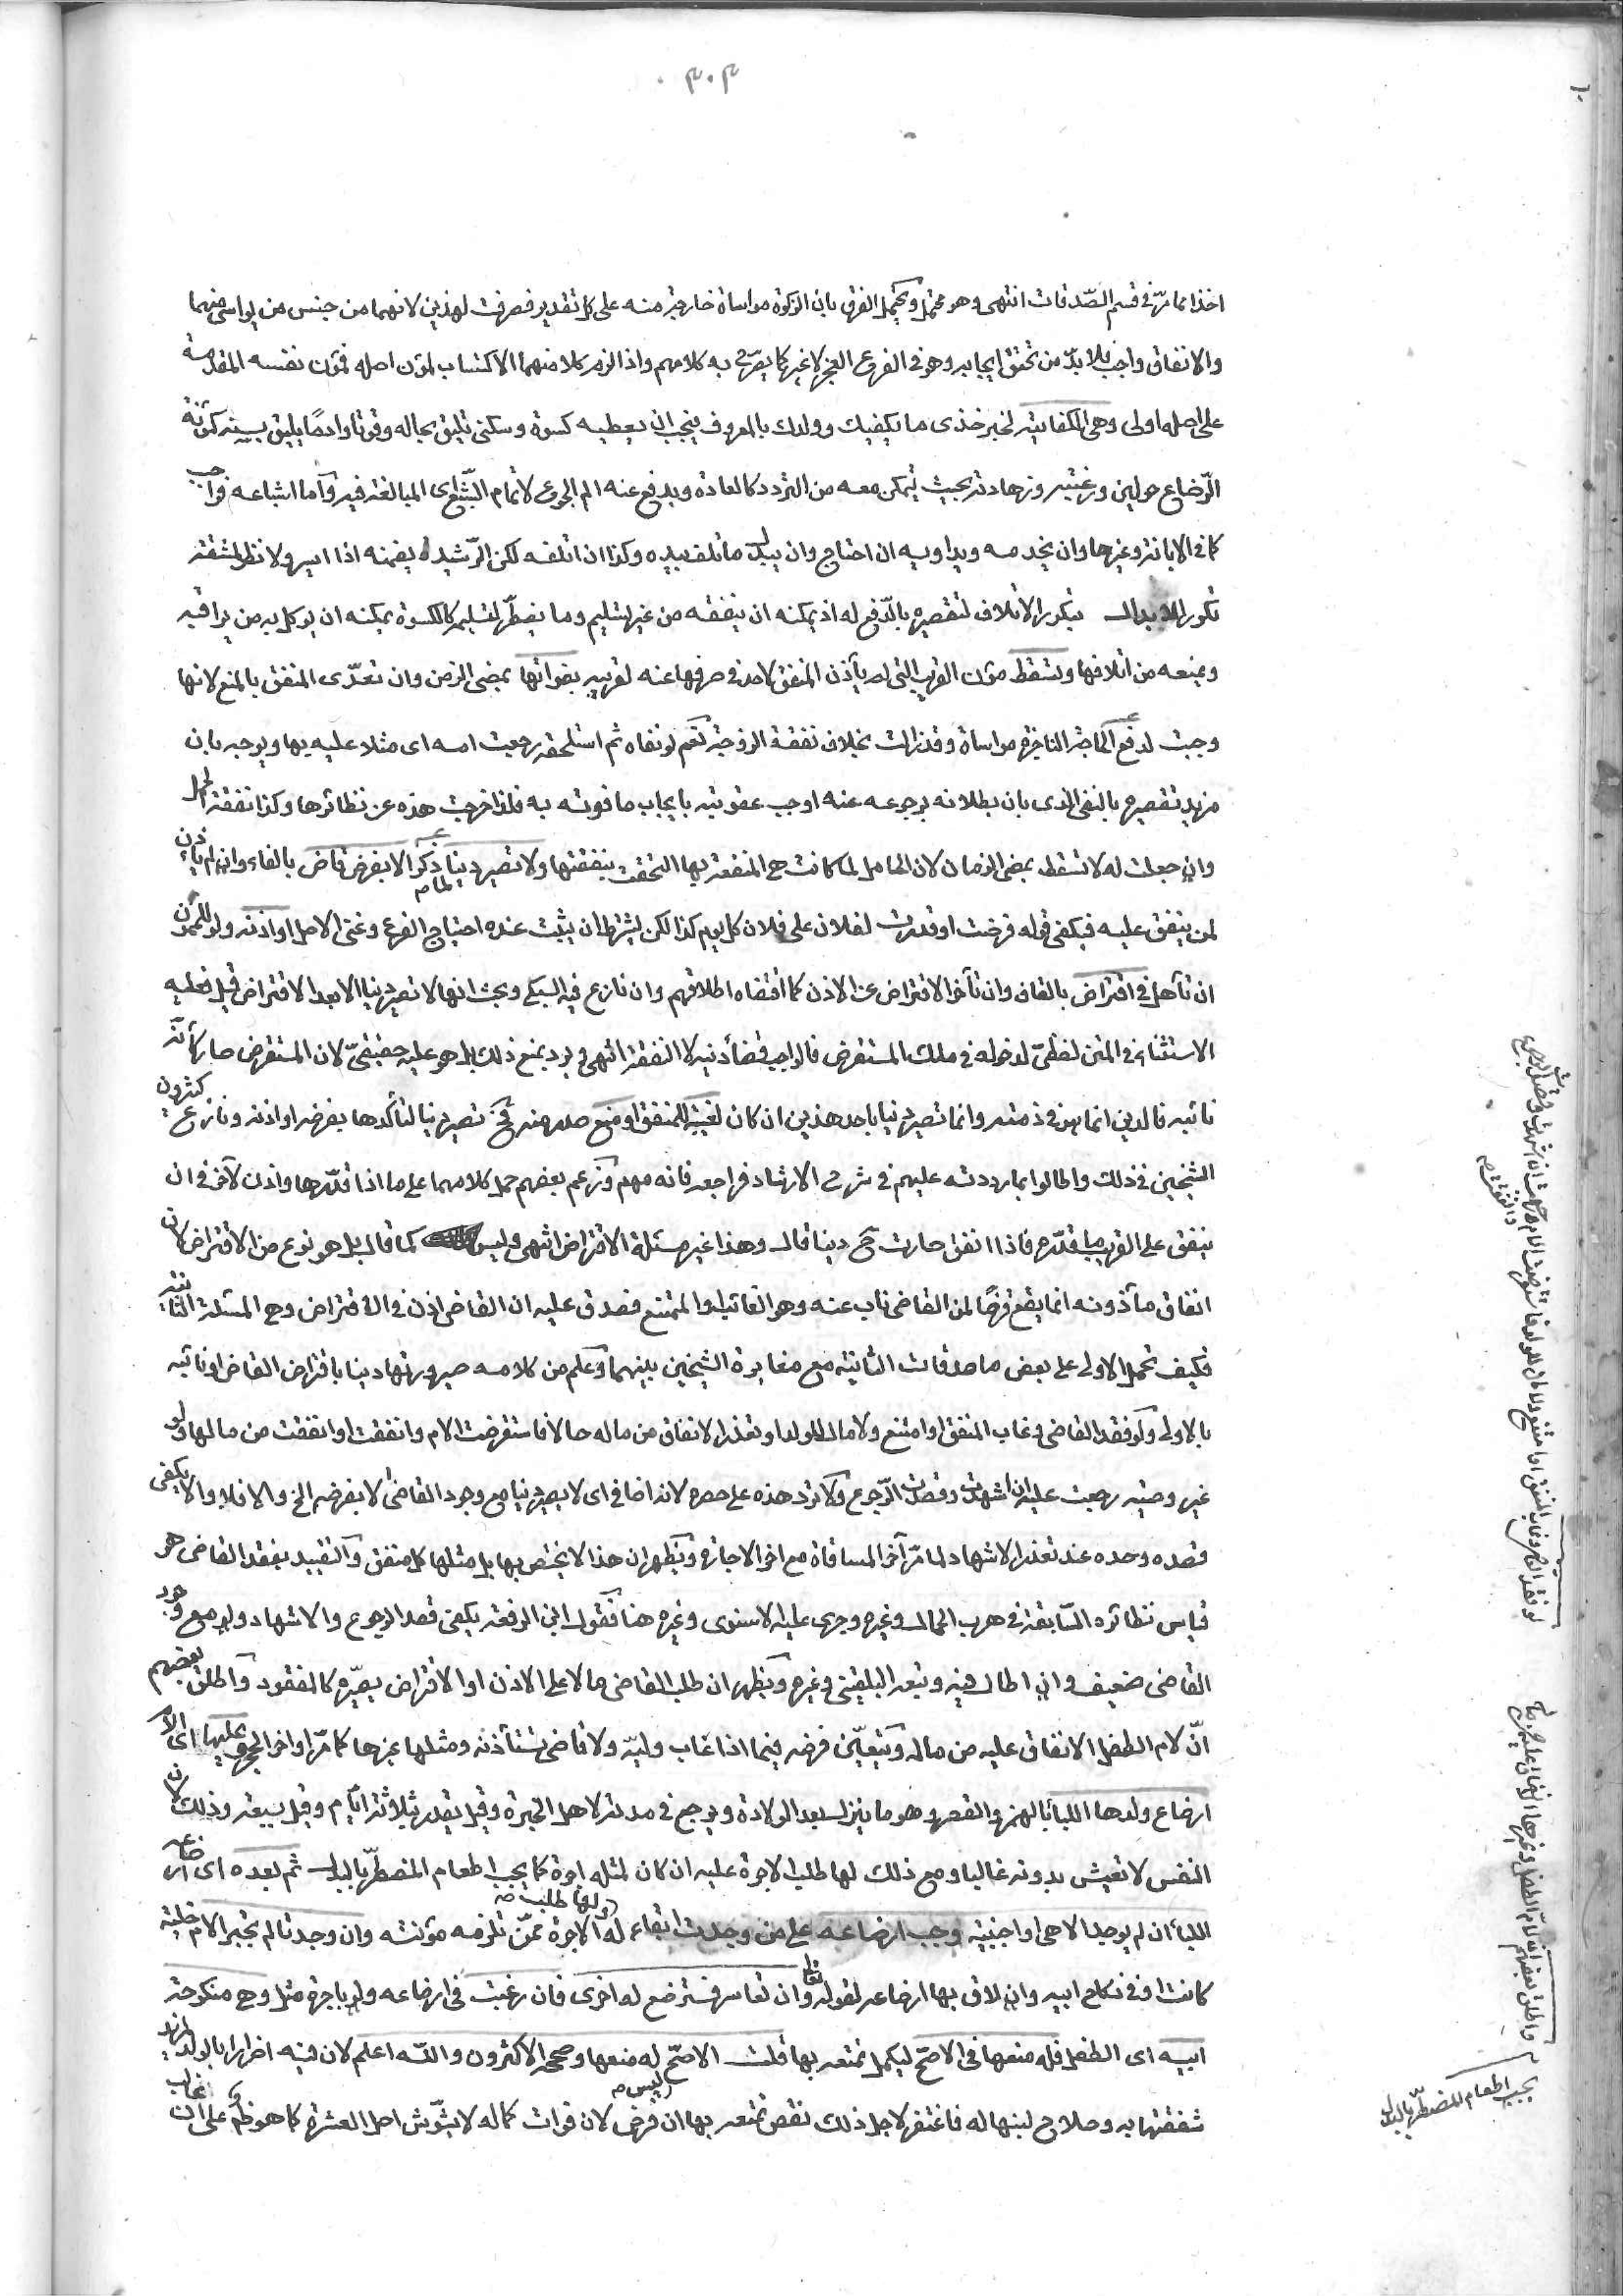 ٣٠٣
اخذا مما مرّ فى قسم الصّدقات انتهى وهو محتمل ويحتمل الفرق بان الزكوة مواساة خارجة منه على كل تقدير فصرفت لهذين لانهما من جنس من يواسى منهما
والانفاق واجب فلا بدّ من تحقق ايجابه وهو فى الفروع العجز لا غير كما يصرّح به كلامهم واذا لزم كلا منهما الاكتساب لمؤن اصله فمؤن نفسه المقدمة
على اصله اولى وهى الكفاية لخبر خذى ما يكفيك وولدك بالمعروف فيجب ان يعطيه كسوة وسكنى تليق بحاله وقوتا وادمًا يليق بسنه كمؤنة
الرّضاع حولين ورغبته وزهادته بحيث يتمكن معه من التردد كالعادة ويدفع عنه الم الجوع لا تمام الشّبع اى المبالغة فيه وأما اشباعه فواجب
كما فى الابانة وغيرها وان يخدمه ويداويه ان احتاج وان يبدل ما تلف بيده وكذا ان اتلفه لكن الرّشيد يضمنه اذا ايسر ولا نظر لمشقة
تكرر الابدال بتكرر الاتلاف لتقصيره بالدّفع له اذ يمكنه ان ينفقه من غير تسليم وما يضطرّ لتسليمه كالكسوة يمكنه ان يوكل به من يراقبه
ويمنعه من اتلافها وتسقط مؤن القريب التى لم يأذن المنفق لاحد فى صرفها عنه لقريبه بفواتها بمضى الزمن وان تعدّى المنفق بالمنع لانها
وجبت لدفع الحاجة الناجزة مواساة وقد زالت بخلاف نفقة الزوجة نعم لو نفاه ثم استلحقه رجعت امه اى مثلا عليه بها ويوجه بان
مزيد تقصيره بالنفى الذى بان بطلانه برجوعه عنه اوجب عقوبته بايجاب ما فوته به فلذا خرجت هذه عن نظائرها وكذا نفقة الحمل
وان جعلت له لا تسقط بمضى الزمان لان الحامل لما كانت هى المنتفعة بها التحقت بنفقتها ولا تصير دينا لما ذكر الا بفرض قاض بالفاء وان لم يأذن
لمن ينفق عليه فيكفى قوله فرضت او قدرت لفلان على فلان كل يوم كذا لكن يشترط ان يثبت عنده احتياج الفرع وغنى الاصل او اذنه ولو للممون
ان تأهل فى اقتراض بالقاف وان تأخر الاقتراض عن الاذن كما اقتضاه اطلاقهم وان نازع فيه السبكى وبحث انها لا تصير دينا الا بعد الاقتراض قيل فعليه
الاستثناء فى المتن لفظىّ لدخوله فى ملك المستقرض فالواجب قضأ دينه لا النفقة انتهى ويرد بمنع ذلك بل هو عليه حقيقىّ لان المستقرض صار كأنه
نائبه فالدين انما هو فى ذمته وانما تصير دينا باحد هذين ان كان لغيبة للمنفق او منع صدر منه فح تصير دينا لتأكدها بفرضه او اذنه ونازع كثيرون
الشيخين فى ذلك واطالوا بما رددته عليهم فى شرح الارشاد فراجعه فانه مهم وزعم بعضهم حمل كلامهما على ما اذا قدّرها واذن لآخر فى ان
ينفق على القريب ما قدّره فاذا انفق صارت ح دينا قال وهذا غير مسئلة الاقتراض انتهى وليس كما قال بل هو نوع من الاقتراض لان
انفاق مأذونه انما يقع قرضًا لمن القاضى ناب عنه وهو الغائب او الممتنع فصدق عليه ان القاضى اذن فى الاقتراض وهى المسئلة الثانية
فكيف تحمل الاولى على بعض ما صدقات الثانية مع مغايرة الشيخين بينهما وعلم من كلامه صيرورتها دينا باقتراض القاضى او نائبه
بالاولى ولو فقد القاضى وغاب المنفق او امتنع ولا مال للولد او تعذر الانفاق من ماله حالا فاستقرضت الام وانفقت او انفقت من مالها ولو
غير وصية رجعت عليه ان اشهدت وقصدت الرّجوع ولا ترد هذه على حصره لانه اضافى اى لا يصير دينا مع وجود القاضى الا بفرضه الخ والا فلا ولا يكفى
قصده وحده عند تعذر الاشهاد لما مرّ آخر المساقاة مع اخر الاجارة ويظهر ان هذا لا يختص بها بل مثلها كل منفق والتقييد بفقد القاضى هو
قياس نظائره السّابقة فى هرب الجمال وغيره وجرى عليه الاسنوى وغيره هنا فقول ابن الرفعة يكفى قصد الرجوع والاشهاد ولو مع وجود
القاضى ضعيف وان اطال فيه وتبعه البلقينى وغيره ويظهر ان طلب القاضى مالا على الاذن او الاقتراض يصيّره كالمفقود واطلق بعضهم
انّ لام الطفل الانفاق عليه من ماله ويتعيّن فرضه فيما اذا غاب وليّه ولا قاضى تستأذنه ومثلها غيرها كما مرّ اواخر الحجر وعليها اى الام
ارضاع ولدها اللبأ بالهمز والقصر وهو ما ينزل بعد الولادة ويرجع فى مدته لاهل الخبرة وقيل يقدر بثلاثة ايّام وقيل بسبعة وذلك لان
النفس لا تعيش بدونه غالبا ومع ذلك لها طلب الاجرة عليه ان كان لمثله اجرة كما يجب اطعام المضطرّ بالبدل ثم بعده اى ارضاعه
اللبأ ان لم يوجد الا هى او اجنبية وجب ارضاعه على من وجدت ابقاء له ولها طلب صح الاجرة ممّن تلزمه مؤنته وان وجدتا لم تجبر الام خلية
كانت او فى نكاح ابيه وان لاق بها ارضاعه لقوله تعالى وان تعاسرتم فسترضع له اخرى فان رغبت فى ارضاعه ولو باجرة مثل وهى منكوحة
ابيه اى الطفل فله منعها فى الاصحّ ليكمل تمتعه بها قلت الاصحّ له منعها وصححه الاكثرون والله اعلم لان فيه اضرارا بالولد لمزيد
شفقتها به وصلاح لبنها له فاغتفر لاجل ذلك نقص تمتعه بها ان فرض لان فوات كماله ليس صح لا يشوّش اصل العشرة كما هو ظ وعلى ان غالب
لو فقد القاضى وغاب المنفق او امتنع ولا مال للولد فاستقرضت الام رجعت ان اشهدت وقصدت
واطلق بعضهم ان لام الطفل وغيرها الانفاق عليه
يجب اطعام المضطرّ بالبدل